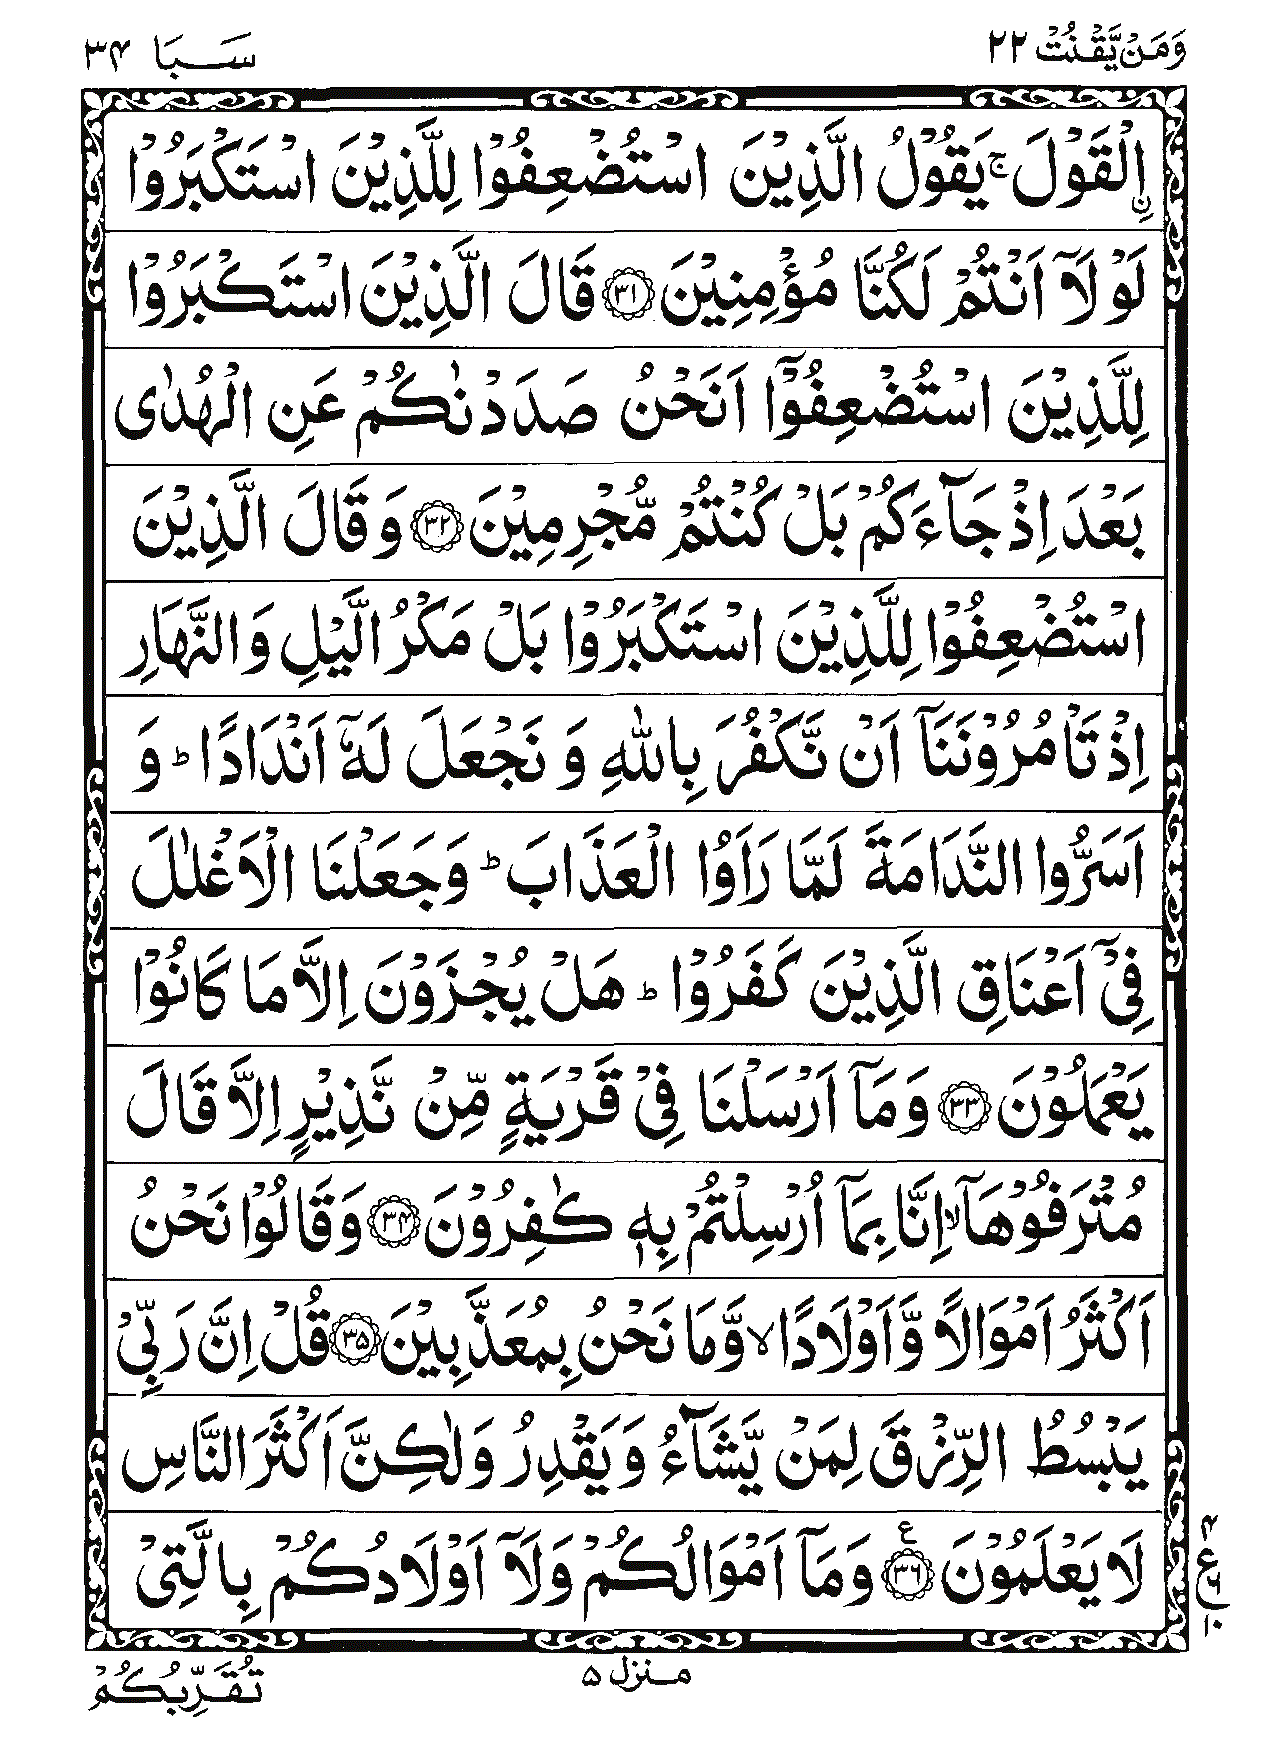 وَمَنْ يَّقْنُتْ ٢٢
سَبَا ٣۴
اِۨلْقَوْلَ ۚ يَقُوْلُ الَّذِيْنَ اسْتُضْعِفُوْا لِلَّذِيْنَ اسْتَكْبَرُوْا
لَوْ لَاۤ اَنْتُمْ لَكُنَّا مُؤْمِنِيْنَ ﴿٣١﴾ قَالَ الَّذِيْنَ اسْتَكْبَرُوْا
لِلَّذِيْنَ اسْتُضْعِفُوْۤا اَنَحْنُ صَدَدْنٰكُمْ عَنِ الْهُدٰى
بَعْدَ اِذْ جَآءَكُمْ بَلْ كُنْتُمْ مُّجْرِمِيْنَ ﴿٣٢﴾ وَ قَالَ الَّذِيْنَ
اسْتُضْعِفُوْا لِلَّذِيْنَ اسْتَكْبَرُوْا بَلْ مَكْرُ الَّيْلِ وَ النَّهَارِ
اِذْ تَاْمُرُوْنَنَاۤ اَنْ نَّكْفُرَ بِاللّٰهِ وَ نَجْعَلَ لَهٗۤ اَنْدَادًا ؕ وَ
اَسَرُّوا النَّدَامَةَ لَمَّا رَاَوُا الْعَذَابَ ؕ وَ جَعَلْنَا الْاَغْلٰلَ
فِيْۤ اَعْنَاقِ الَّذِيْنَ كَفَرُوْا ؕ هَلْ يُجْزَوْنَ اِلَّا مَا كَانُوْا
يَعْمَلُوْنَ ﴿٣٣﴾ وَ مَاۤ اَرْسَلْنَا فِيْ قَرْيَةٍ مِّنْ نَّذِيْرٍ اِلَّا قَالَ
مُتْرَفُوْهَاۤ ۙ اِنَّا بِمَاۤ اُرْسِلْتُمْ بِهٖ كٰفِرُوْنَ ﴿٣۴﴾ وَ قَالُوْا نَحْنُ
اَكْثَرُ اَمْوَالًا وَّ اَوْلَادًا ۙ وَّ مَا نَحْنُ بِمُعَذَّبِيْنَ ﴿٣۵﴾ قُلْ اِنَّ رَبِّيْ
يَبْسُطُ الرِّزْقَ لِمَنْ يَّشَآءُ وَ يَقْدِرُ وَ لٰكِنَّ اَكْثَرَ النَّاسِ
لَا يَعْلَمُوْنَ ﴿٣۶﴾ ع وَ مَاۤ اَمْوَالُكُمْ وَ لَاۤ اَوْلَادُكُمْ بِالَّتِيْ
۴
ع
۶
١٠
منزل ۵
تُقَرِّبُكُمْ